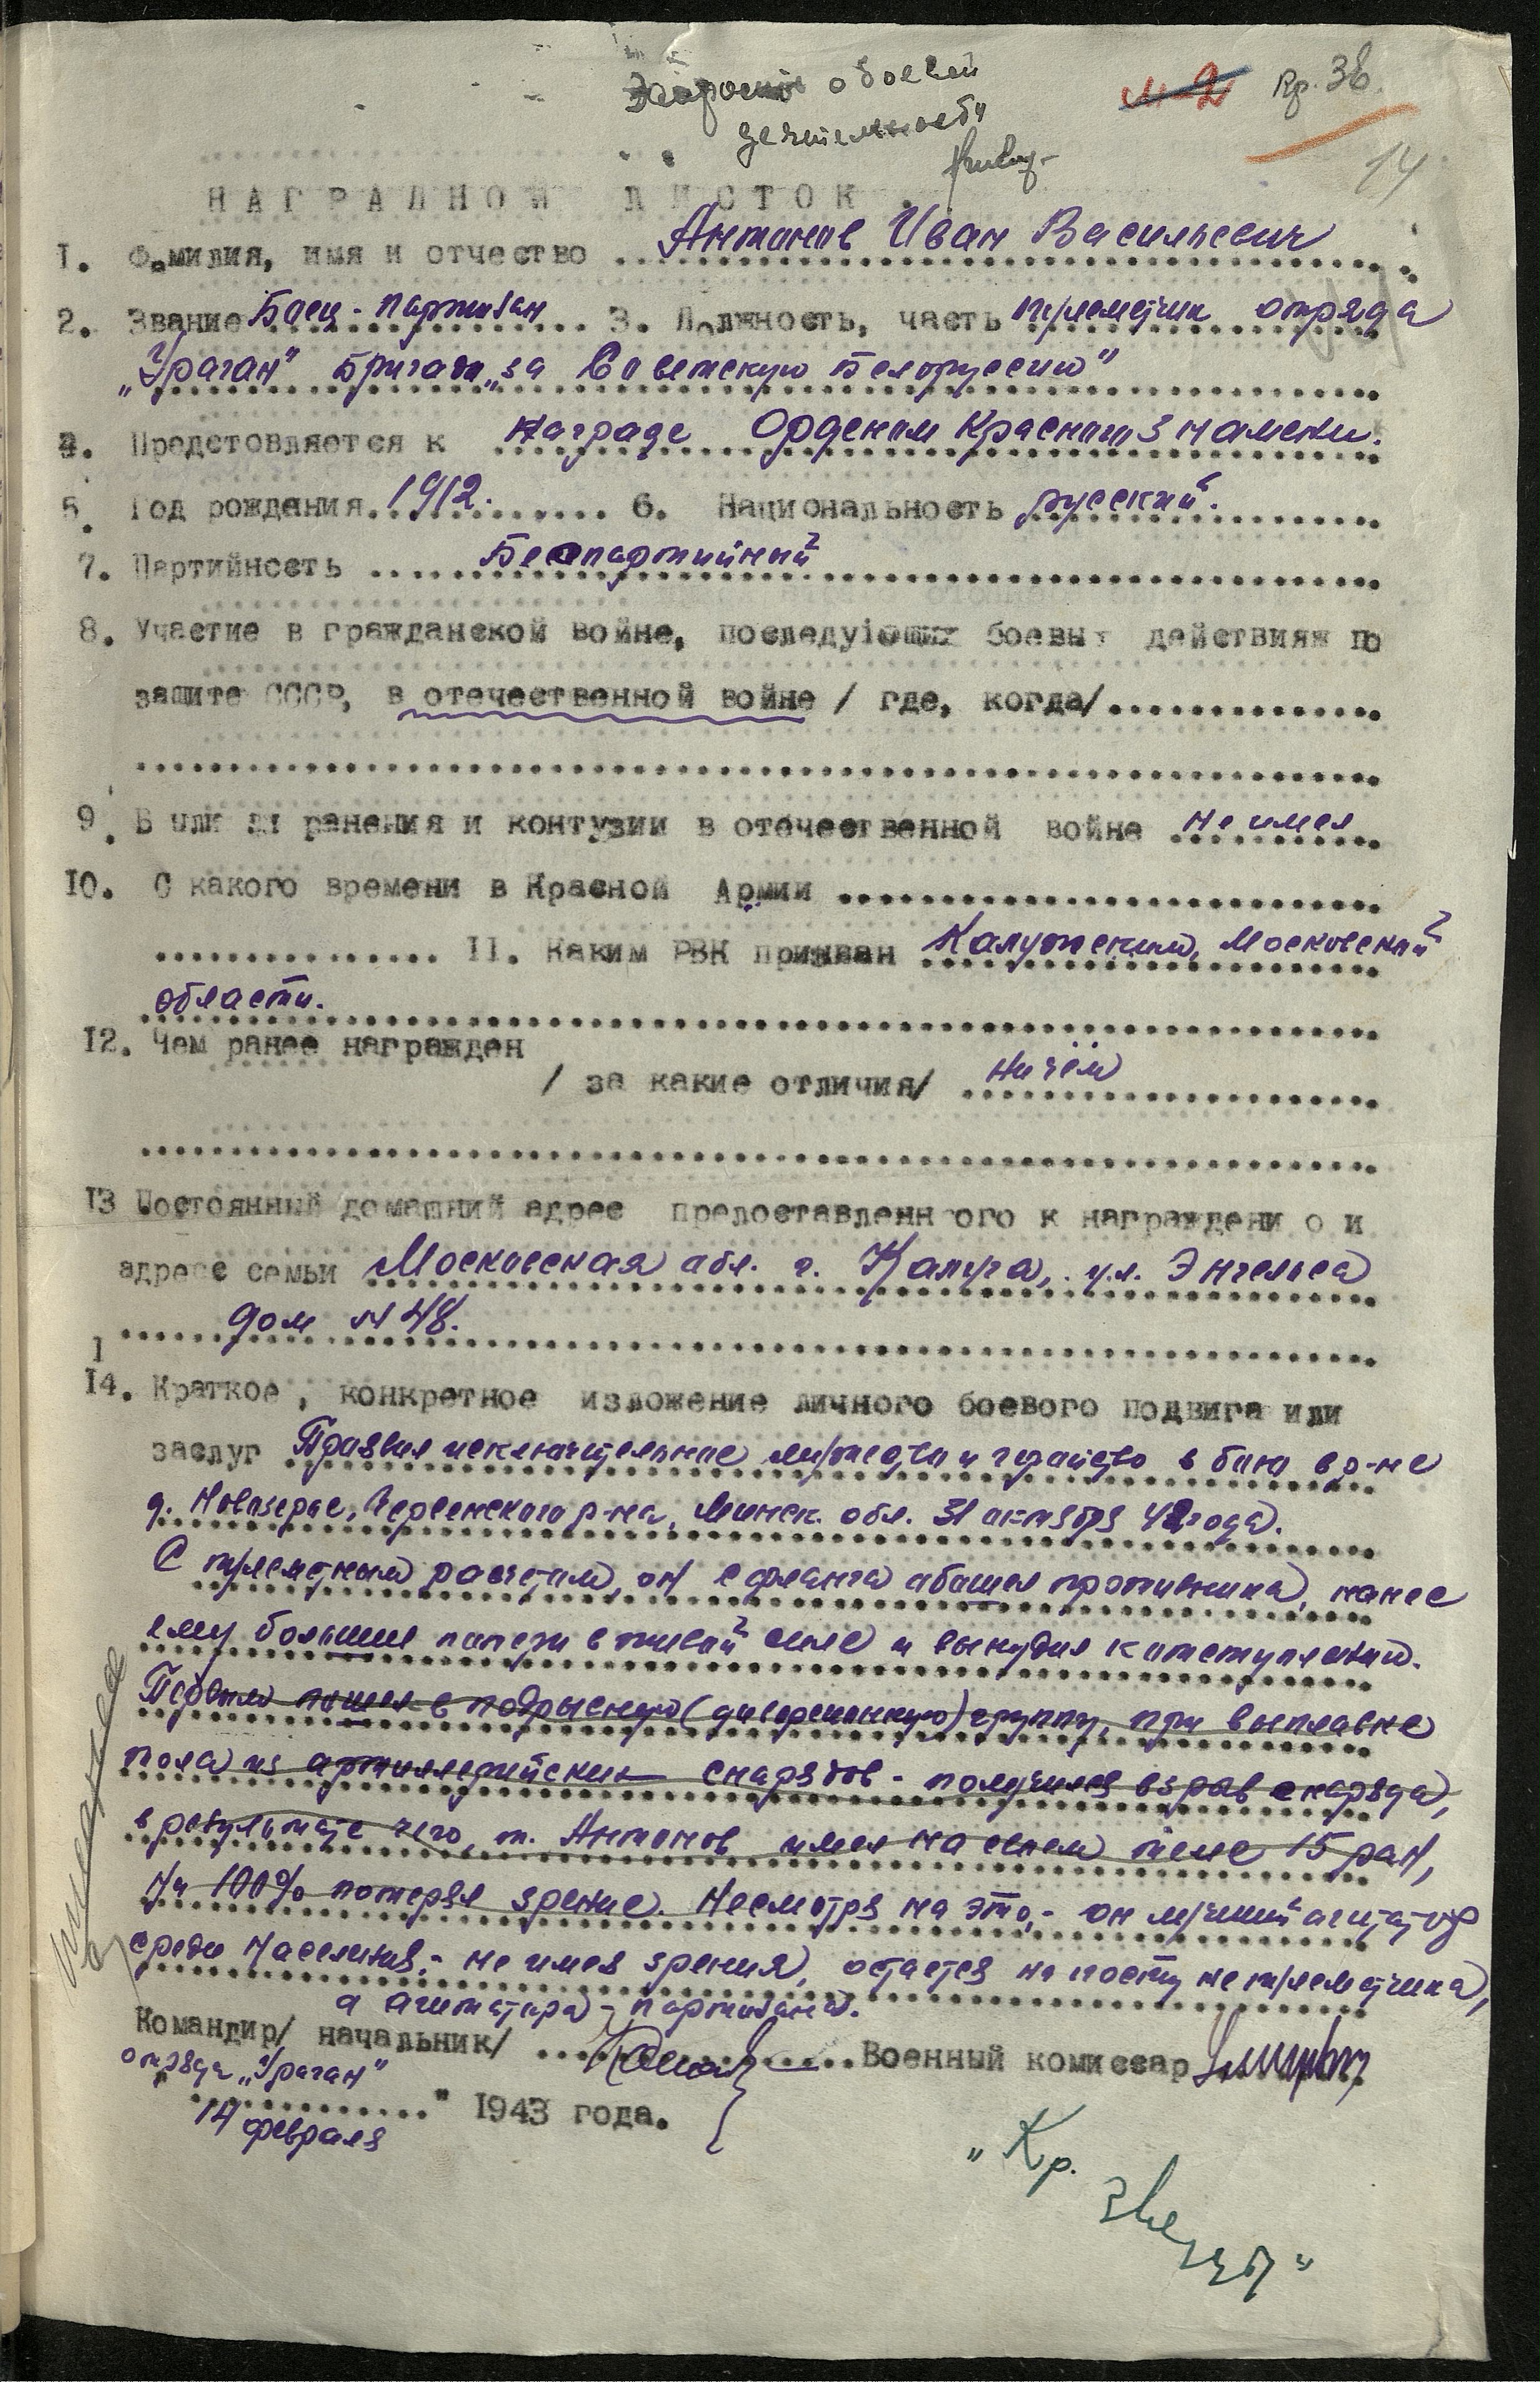 о боевой
деятельности
Кр. Зв.
14
НАГРАДНОЙ ЛИСТОК.
1. Фамилия, имя и отчество Антонов Иван Васильевич
2. Звание Боец-партизан 3. Должность, часть пулеметчик отряда
„Ураган" бригады „за Советскую Белоруссию"
4. Предстовляется к награде Орденом Красного Знамени.
5. Год рождения 1912. 6. Национальность русский.
7. Партийность Беспартийный
8. Участие в гражданской войне, последующих боевых действиях по
защите СССР, в отечественной войне / где, когда/
9. Были ли ранения и контузии в отечественной войне не имел
10. С какого времени в Красной Армии
11. Каким РВК призван Калужским, Московской
области.
12. Чем ранее награжден
/ за какие отличия/ ничем
13 Постоянный домашний адрес предоставленного к награждению и
адрес семьи Московская обл. г. Калуга, ул. Энгельса
дом №48.
14. Краткое, конкретное изложение личного боевого подвига или
заслуг Проявил исключительное мужество и геройство в бою в р-не
д. Новозерье, Червенского р-на, Минск. обл. 31 октября 42 года.
С пулеметным расчетом, он с фланга обошел противника, нанес
ему большие потери в живой силе и вынудил к отступлению.
Первым пошел в подрывную (диверсионную) группу, при выплавке
тола из артиллерийских снарядов - получился взрыв снаряда,
в результате чего, т. Антонов имел на своем теле 15 ран,
На 100% потерял зрение. Несмотря на это,- он лучший агитатор
среди населения,- не имея зрения, остается на посту не пулеметчика,
а агитатора - партизана.
Командир/ начальник/ Военный комиссар
отряда „Ураган"
14 февраля " 1943 года.
„Кр.
Звезды"